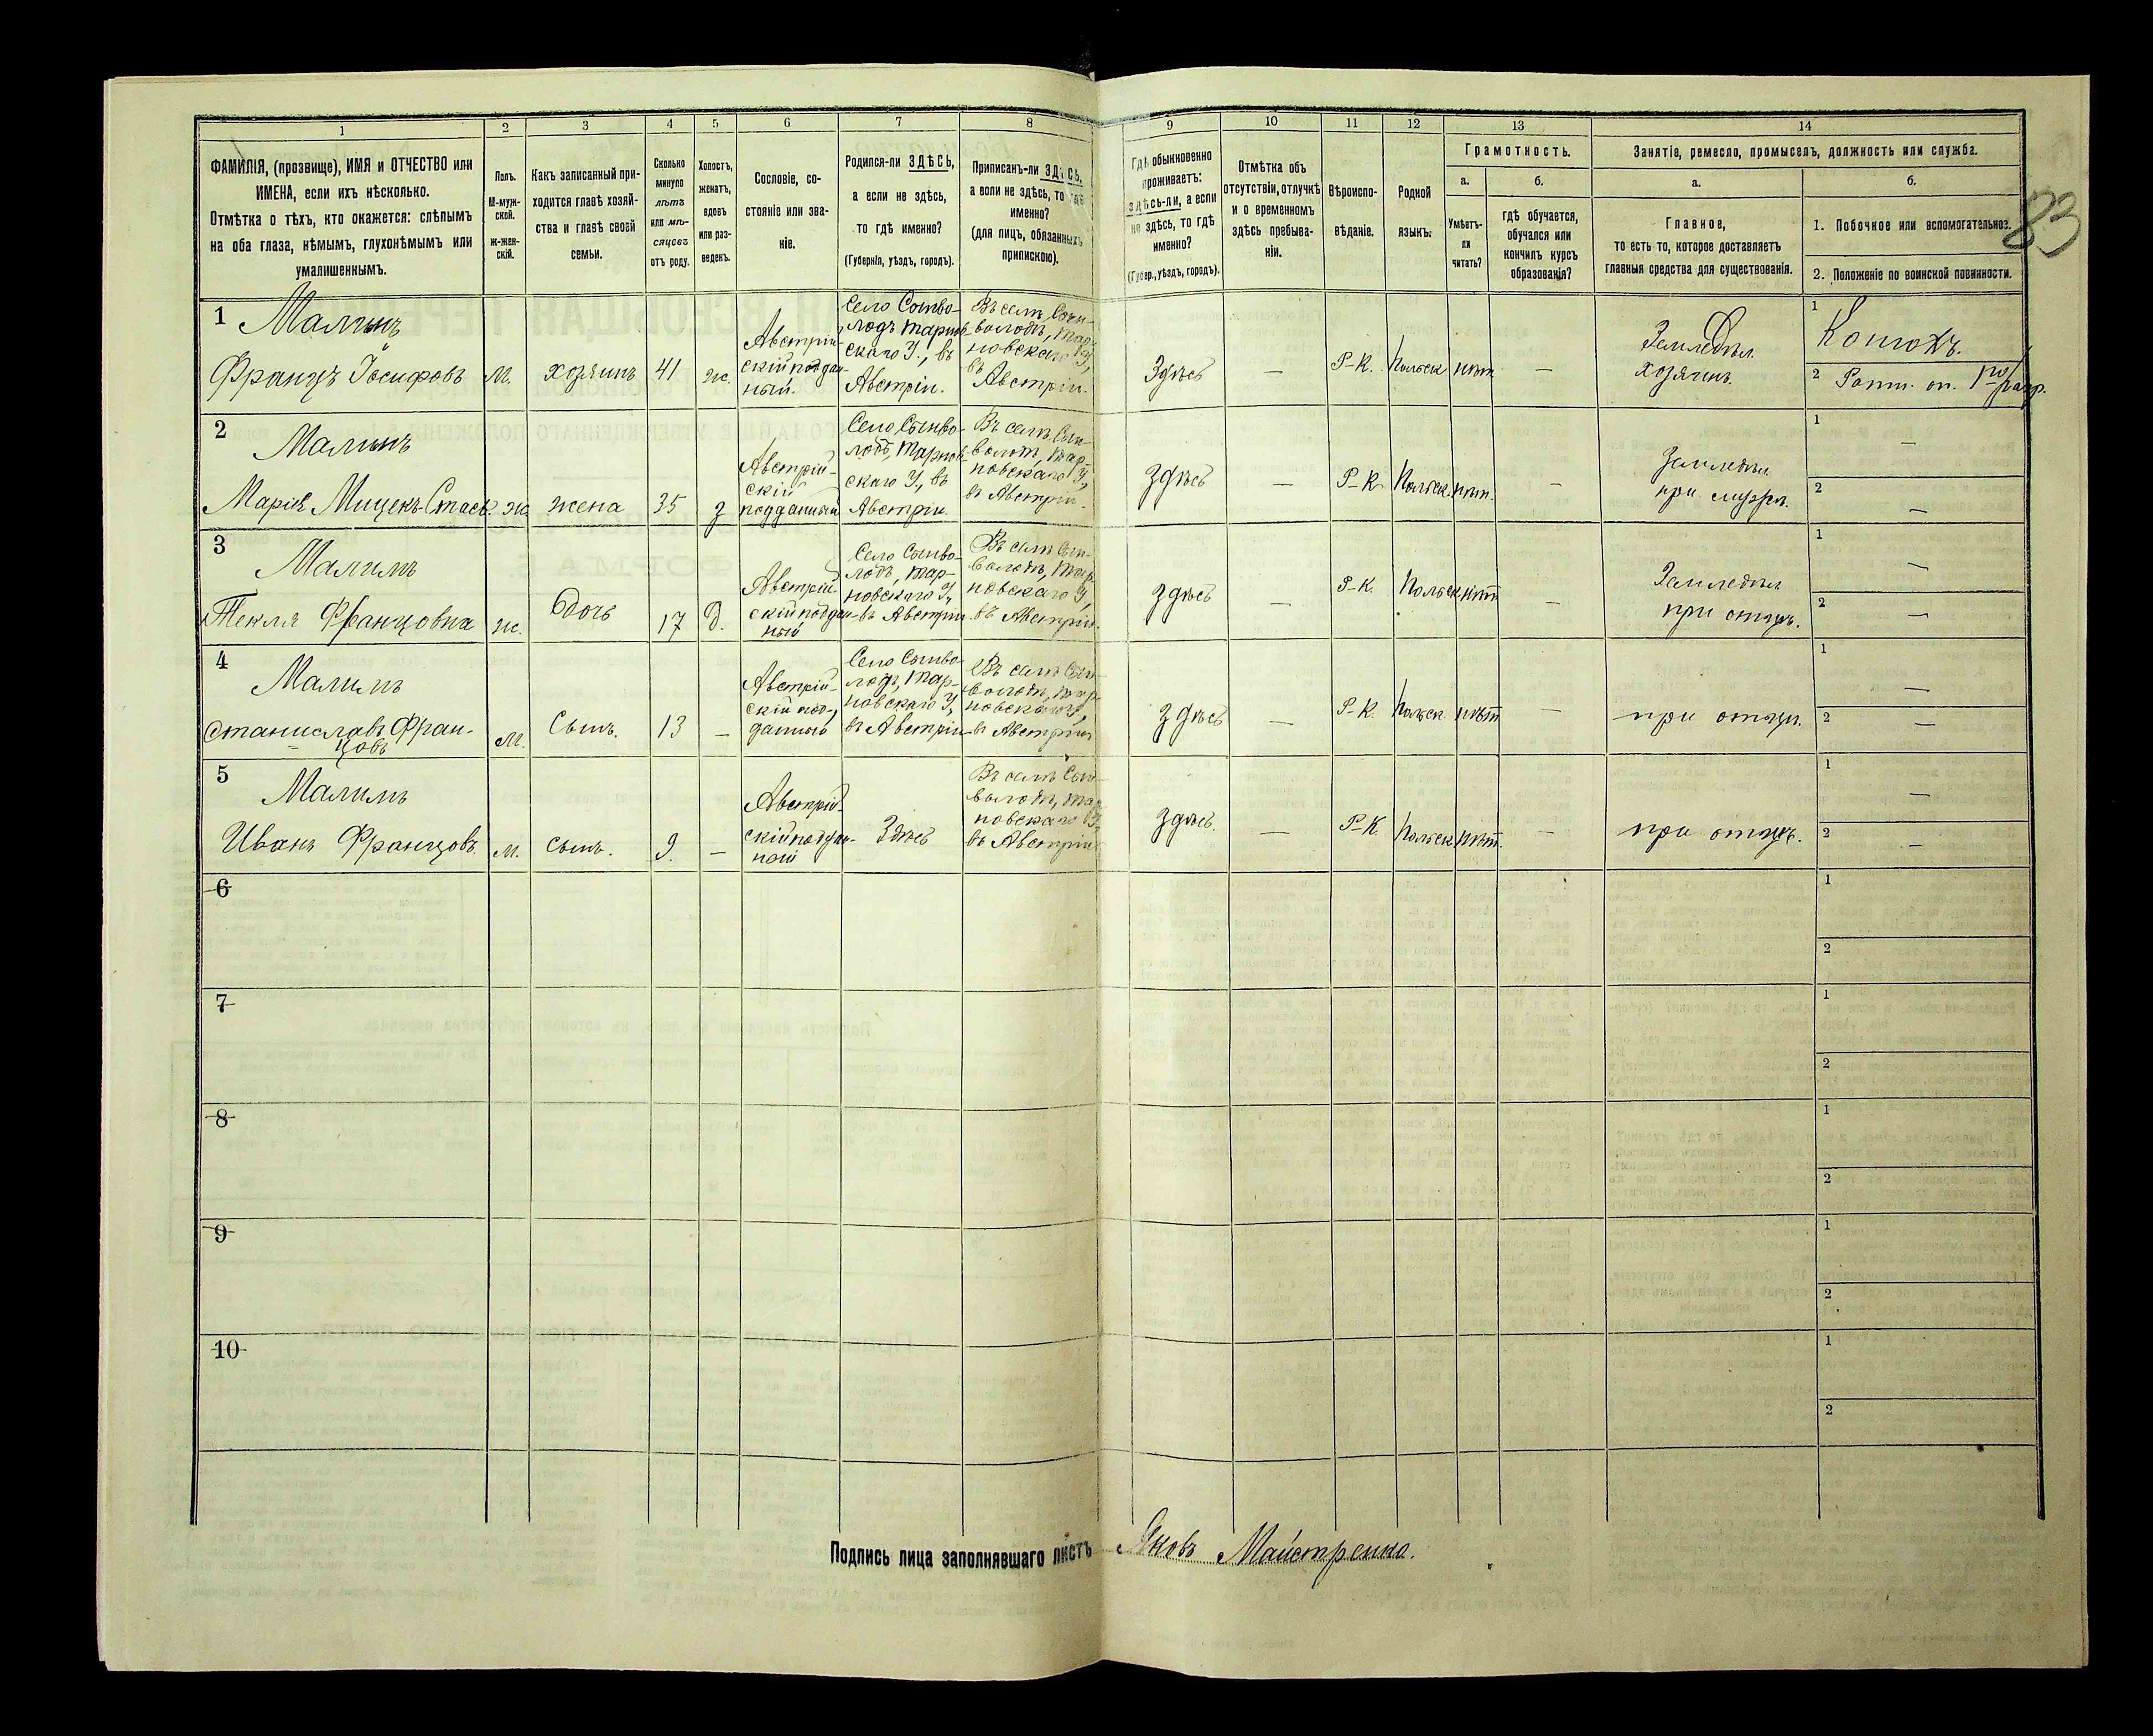 1 2 3 4 5 6 7 8 9 10 11 12 13 14
ФАМИЛІЯ, (прозвище), ИМЯ и ОТЧЕСТВО или
ИМЕНА, если ихъ нѣсколько.
Отмѣтка о тѣхъ, кто окажется: слѣпымъ
на оба глаза, нѣмымъ, глухонѣмымъ или
умалишеннымъ.
Полъ.
М-муж-
ской.
ж-жен-
скій.
Какъ записанный при-
ходится главѣ хозяй-
ства и главѣ своей
семьи.
Сколько
минуло
лѣтъ
или мѣ-
сяцевъ
отъ роду.
Холостъ,
женатъ,
вдовъ
или раз-
веденъ.
Сословіе, со-
стояніе или зва-
ніе.
Родился-ли ЗДѢСЬ,
а если не здѣсь,
то гдѣ именно?
(Губернія, уѣздъ, городъ).
Приписанъ-ли ЗДѢСЬ,
а если не здѣсь, то гдѣ
именно?
(для лицъ, обязанныхъ
припискою).
Гдѣ обыкновенно
проживаетъ:
здѣсь-ли, а если
не здѣсь, то гдѣ
именно?
(Губер., уѣздъ, городъ).
Отмѣтка объ
отсутствіи, отлучкѣ
и о временномъ
здѣсь пребыва-
ніи.
Вѣроиспо-
вѣданіе.
Родной
языкъ.
Грамотность.
а.
б.
Умѣетъ-
ли
читать?
гдѣ обучается,
обучался или
кончилъ курсъ
образованія?
Занятіе, ремесло, промыселъ, должность или служба.
а.
б.
Главное,
то есть то, которое доставляетъ
главныя средства для существованія.
1. Побочное или вспомогательное.
2. Положеніе по воинской повинности.
83
1 Малинъ
Францъ Іосифовъ
м.
хозяинъ
41
ж.
Австрій-
скій поддан-
ный.
Село
скаго У., въ
Австріи.
Въ селѣ
новскаго У,
въ Австріи.
Здѣсь
—
Р-К.
Польск
нѣт
—
Земледѣл.
хозяинъ.
1
Конюхъ.
2
2 Малинъ
Марія
ж
жена
35
з
Австрій-
скій
подданный
Село
скаго У., въ
Австріи
Въ селѣ
новскаго У,
въ Австріи.
Здѣсь
—
Р-К.
Польск.
нѣт.
—
Земледѣл.
при
1 —
2 —
3 Малинъ
Текля Францовна
ж.
дочь
17
д.
Австрій-
скій поддан-
ный
Село
лодъ, Тар-
новскаго У,
въ Австріи.
Въ селѣ
новскаго У,
въ Австріи.
здѣсь
—
Р-К.
Польск
нѣт
—
Земледѣл
при отцѣ.
1 —
2 —
4 Малинъ
Станиславъ Фран-
цовъ
м.
Сынъ.
13
—
Австрій-
скій под-
данный
Село
лодъ, Тар-
новскаго У,
въ Австріи
Въ селѣ
новскаго У,
въ Австріи
здѣсь
—
Р-К.
Польск.
нѣт
—
при отцѣ.
1 —
2 —
5 Малинъ
Иванъ Францовъ.
м.
сынъ.
9.
—
Австрій-
скій поддан-
ный
Здѣсь
Въ селѣ
новскаго У,
въ Австріи
здѣсь.
—
Р-К.
Польск.
нѣт.
—
при отцѣ.
1 —
2 —
6
1
2
7
1
2
8
1
2
9
1
2
10
1
2
Подпись лица заполнявшаго листъ Яковъ Майстренко.